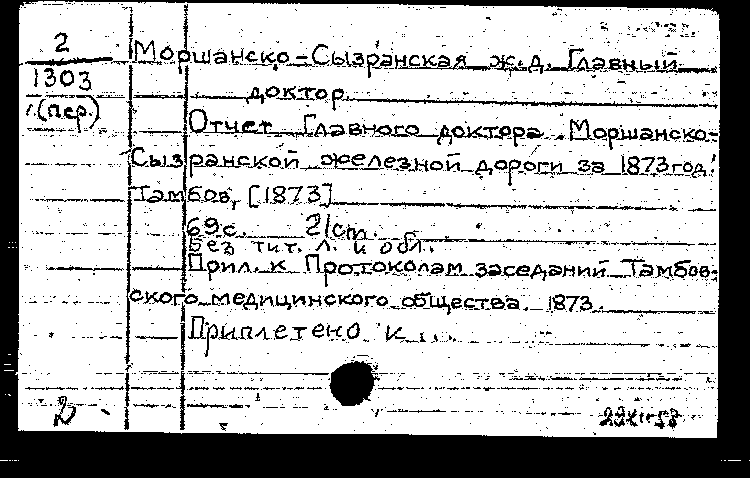 2
1303
(пер.)
Моршанско-Сызранская ж.д. Главный
доктор.
Отчет Главного доктора Моршанско-
Сызранской железной дороги за 1873 год.
Тамбов, [1873]
69 с. 21 cm.
Без тит. л. и обл.
Прил. к Протоколам заседаний Тамбов-
ского медицинского общества. 1873.
Приплетено к ...
2